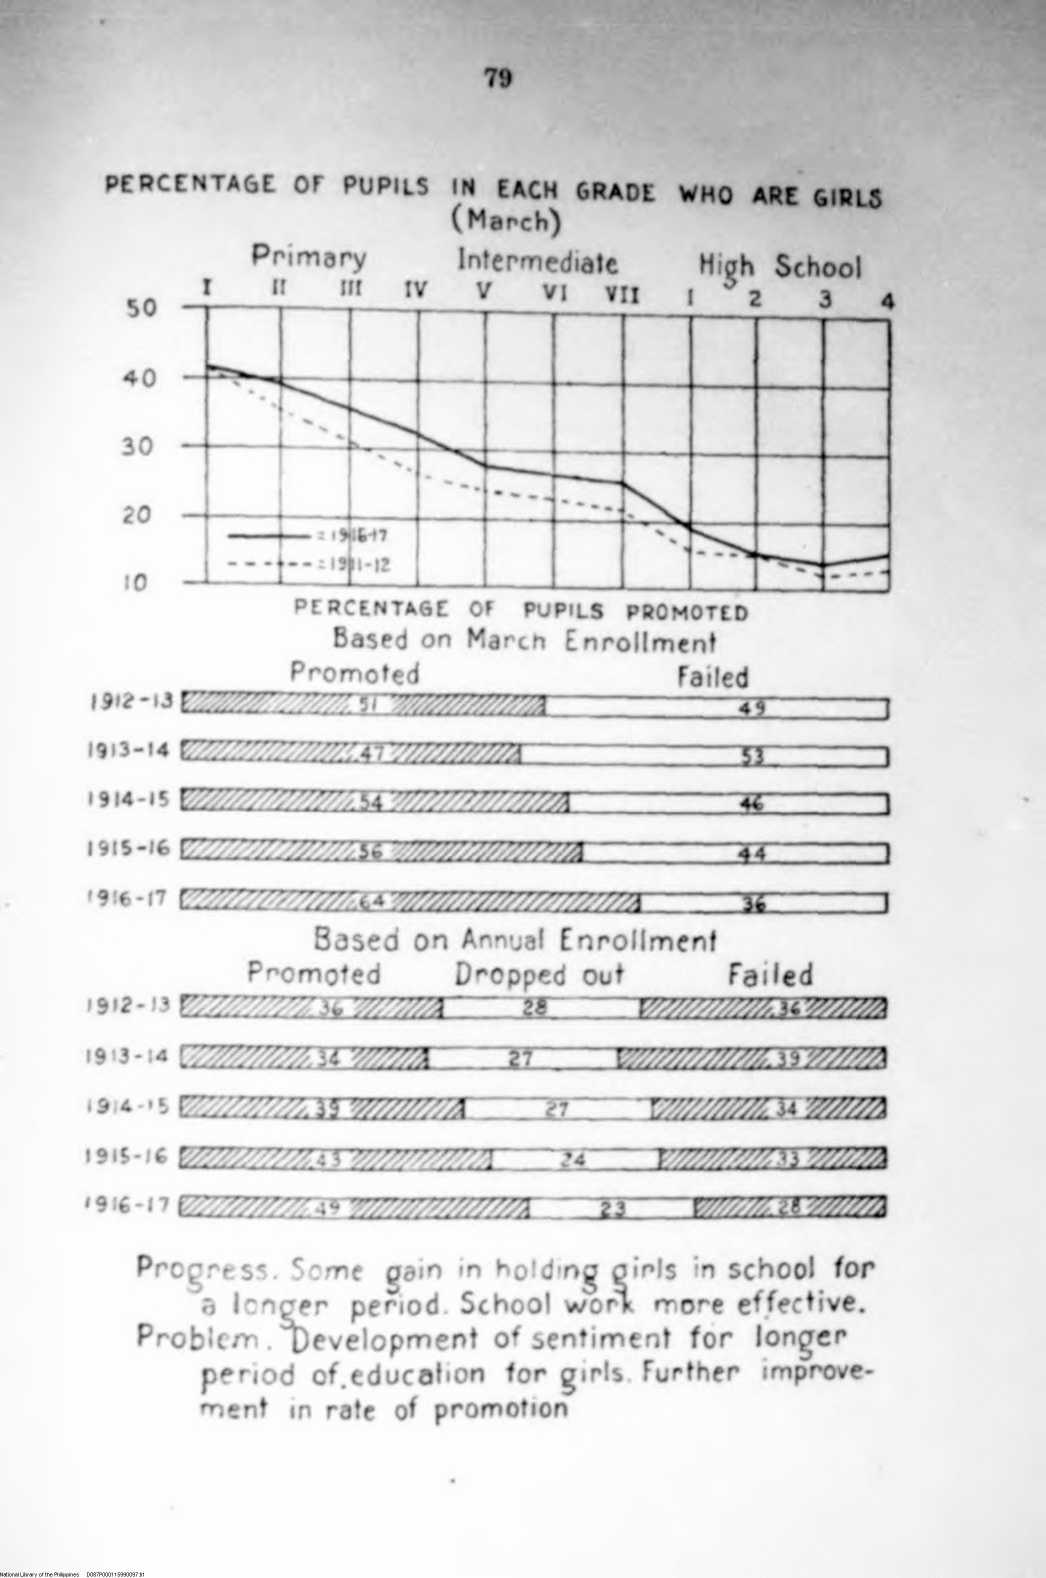 79
PERCENTAGE OF PUPILS IN EACH GRADE WHO ARE GIRLS
(March)
Primary Intermediate High School
I II III IV V VI VII 1 2 3 4
50
40
30
20
10
= 1916-17
= 1911-12
PERCENTAGE OF PUPILS PROMOTED
Based on March Enrollment
Promoted Failed
1912-13 51 49
1913-14 47 53
1914-15 54 46
1915-16 56 44
1916-17 64 36
Based on Annual Enrollment
Promoted Dropped out Failed
1912-13 36 28 36
1913-14 34 27 39
1914-15 39 27 34
1915-16 43 24 33
1916-17 49 23 28
Progress. Some gain in holding girls in school for
a longer period. School work more effective.
Problem. Development of sentiment for longer
period of education for girls. Further improve-
ment in rate of promotion
National Library of the Philippines